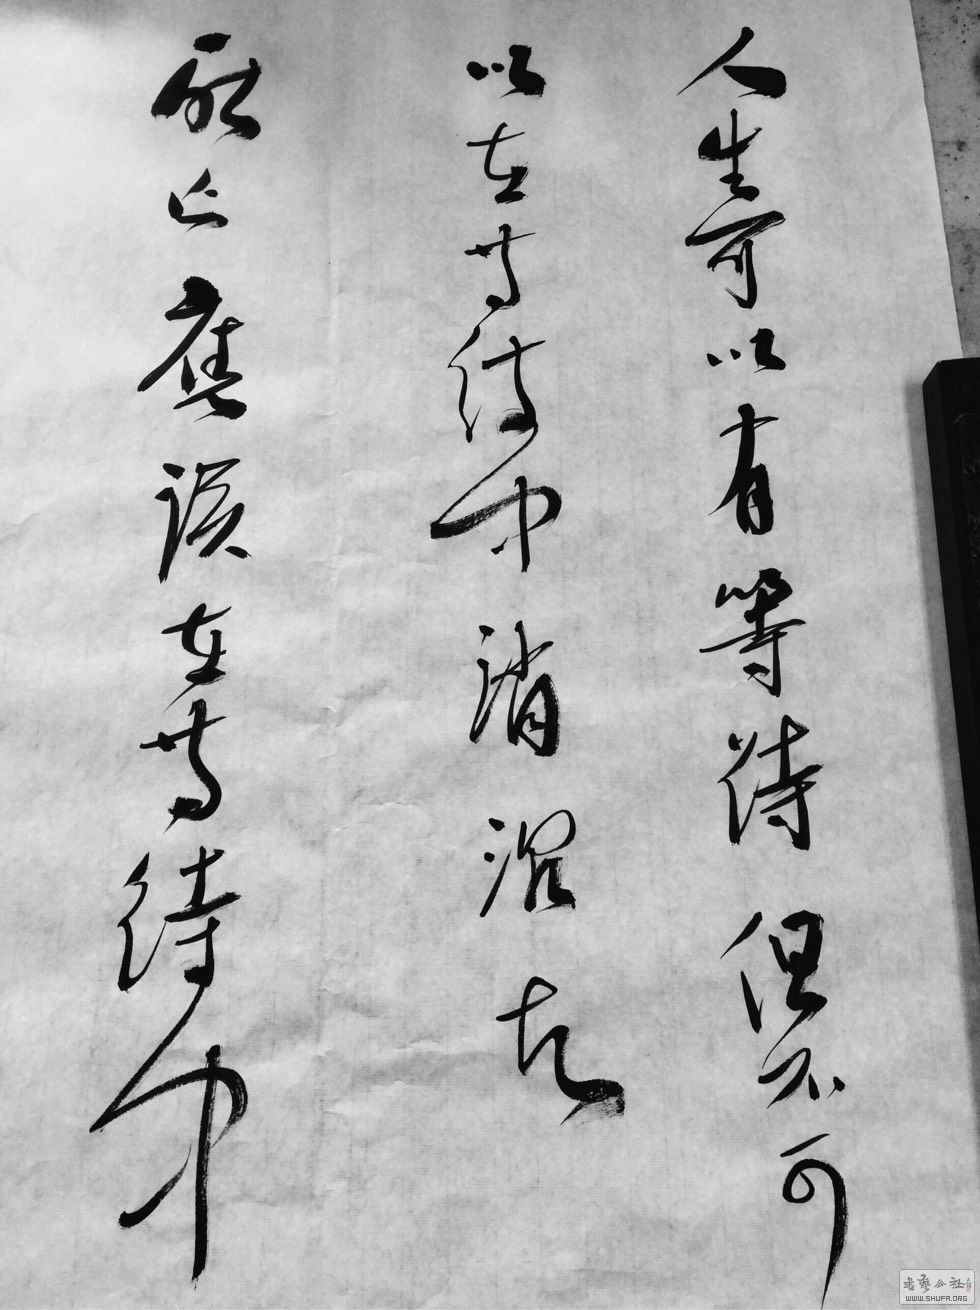 人生可以有等待但不可
以在等待中消沉
應該在等待中
書藝公社
WWW.SHUFA.ORG